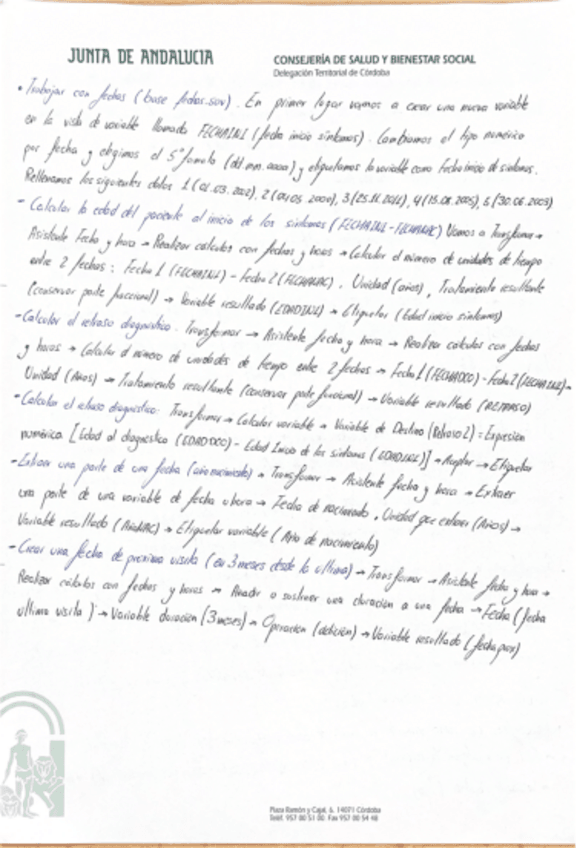 JUNTA DE ANDALUCIA
CONSEJERÍA DE SALUD Y BIENESTAR SOCIAL
Delegación Territorial de Córdoba
• Trabajar con fechas (base fechas.sav). En primer lugar vamos a crear una nueva variable
en la vista de variable llamada FECHAINI (fecha inicio síntomas). Cambiamos el tipo numérico
por fecha y elegimos el 5º formato (dd.mm.aaaa) y etiquetamos la variable como Fecha inicio de síntomas.
Rellenamos los siguientes datos 1 (01.03.2002), 2 (04.05.2000), 3 (25.11.2011), 4 (15.08.2005), 5 (30.06.2003)
- Calcular la edad del paciente al inicio de los síntomas (FECHAINI-FECHANAC) Vamos a Transformar →
Asistente Fecha y hora → Realizar cálculos con fechas y horas → Calcular el número de unidades de tiempo
entre 2 fechas: Fecha 1 (FECHAINI) - Fecha 2 (FECHANAC), Unidad (años), Tratamiento resultante
(conservar parte fraccional) → Variable resultado (EDADINI) → Etiquetar (Edad inicio síntomas)
- Calcular el retraso diagnóstico. Transformar → Asistente fecha y hora → Realizar cálculos con fechas
y horas → Calcular el número de unidades de tiempo entre 2 fechas → Fecha 1 (FECHADCO) - Fecha 2 (FECHAINI) →
Unidad (Años) → Tratamiento resultante (conservar parte fraccional) → Variable resultado (RETRASO)
- Calcular el retraso diagnóstico: Transformar → Calcular variable → Variable de Destino (Retraso2) = Expresión
numérica [Edad al diagnostico (EDADDCO) - Edad Inicio de los síntomas (EDADINI)] → Aceptar → Etiquetar
- Extraer una parte de una fecha (año nacimiento) → Transformar → Asistente fecha y hora → Extraer
una parte de una variable de fecha u hora → Fecha de nacimiento, Unidad que extraer (Años) →
Variable resultado (AñoNAC) → Etiquetar variable (Año de nacimiento)
- Crear una fecha de proxima visita (en 3 meses desde la ultima) → Transformar → Asistente fecha y hora →
Realizar cálculos con fechas y horas → Añadir o sustraer una duración a una fecha → Fecha (fecha
ultima visita) → Variable duración (3 meses) → Operación (adición) → Variable resultado (fechaprox)
Plaza Ramón y Cajal, 6. 14071 Córdoba
Teléf. 957 00 51 00. Fax 957 00 54 48